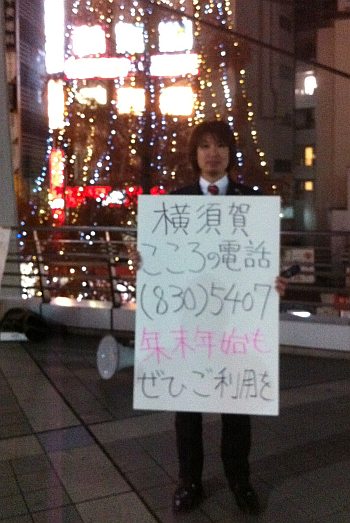 横須賀
こころの電話
(830)5407
年末年始も
ぜひご利用を